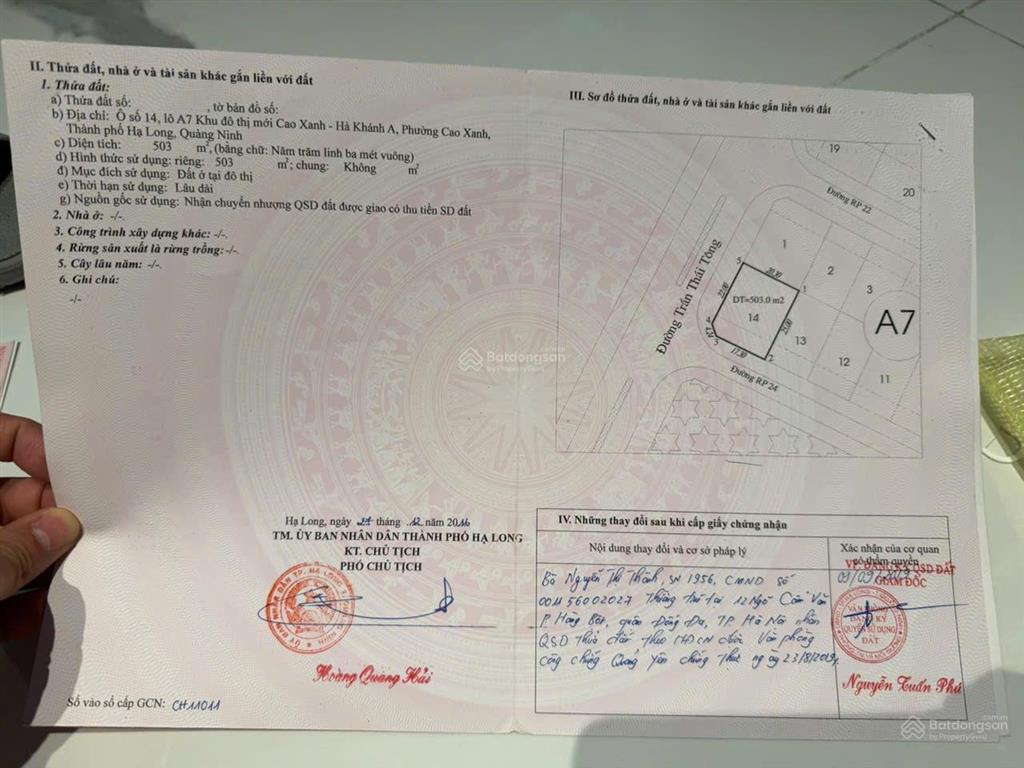 II. Thửa đất, nhà ở và tài sản khác gắn liền với đất
1. Thửa đất:
a) Thửa đất số: , tờ bản đồ số:
b) Địa chỉ: Ô số 14, lô A7 Khu đô thị mới Cao Xanh - Hà Khánh A, Phường Cao Xanh,
Thành phố Hạ Long, Quảng Ninh
c) Diện tích: 503 m², (bằng chữ: Năm trăm linh ba mét vuông)
d) Hình thức sử dụng: riêng: 503 m²; chung: Không m²
đ) Mục đích sử dụng: Đất ở tại đô thị
e) Thời hạn sử dụng: Lâu dài
g) Nguồn gốc sử dụng: Nhận chuyển nhượng QSD đất được giao có thu tiền SD đất
2. Nhà ở: -/-.
3. Công trình xây dựng khác: -/-.
4. Rừng sản xuất là rừng trồng: -/-.
5. Cây lâu năm: -/-.
6. Ghi chú:
-/-
Hạ Long, ngày 27 tháng .12 năm 2016
TM. ỦY BAN NHÂN DÂN THÀNH PHỐ HẠ LONG
KT. CHỦ TỊCH
PHÓ CHỦ TỊCH
Hoàng Quang Hải
Số vào sổ cấp GCN: CH11011
III. Sơ đồ thửa đất, nhà ở và tài sản khác gắn liền với đất
19
20
Đường RP 22
Đường Trần Thái Tông
1
2
3
5
20.30
1
22.00
DT=503.0 m2
14
25.00
4
4.24
3
17.30
2
13
12
11
A7
Đường RP 24
IV. Những thay đổi sau khi cấp giấy chứng nhận
Nội dung thay đổi và cơ sở pháp lý
Xác nhận của cơ quan
có thẩm quyền
VP ĐĂNG KÝ QSD ĐẤT
09/09/2019
GIÁM ĐỐC
Bà Nguyễn Thị Thành, SN 1956, CMND số
001156002027 Thường trú tại 12 Ngõ Văn
P. Hàng Bột, quận Đống Đa, TP. Hà Nội nhận
QSD thửa đất theo HĐCN được Văn phòng
công chứng Quảng Yên chứng thực ngày 23/8/2019.
VĂN PHÒNG
ĐĂNG KÝ
QUYỀN SỬ DỤNG
ĐẤT
Nguyễn Tuấn Phú
Batdongsan.com.vn
by PropertyGuru
Batdongsan.com.vn
by PropertyGuru